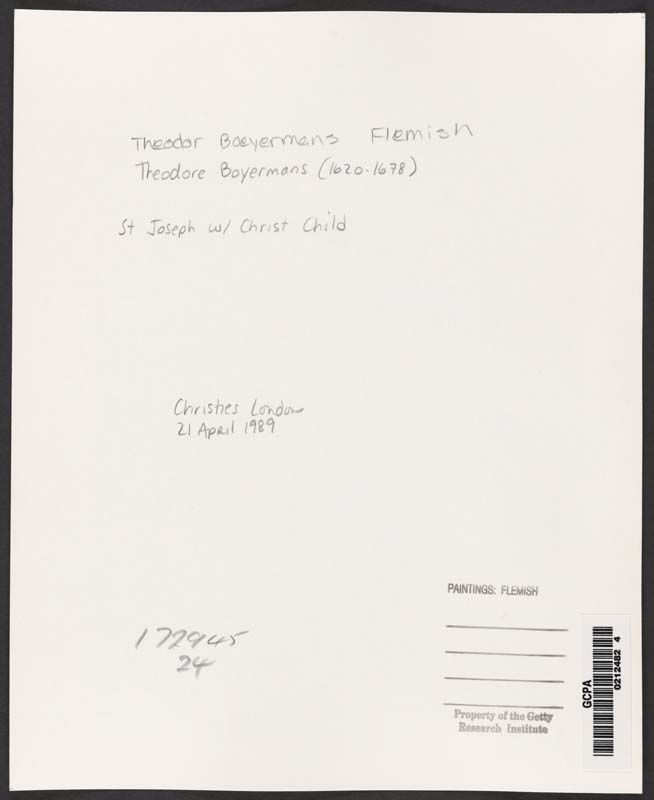 Theodor Boeyermans Flemish
Theodore Boyermans (1620-1678)
St Joseph w/ Christ Child
Christies London
21 April 1989
172945
24
PAINTINGS: FLEMISH
Property of the Getty
Research Institute
GCPA
0212482 4